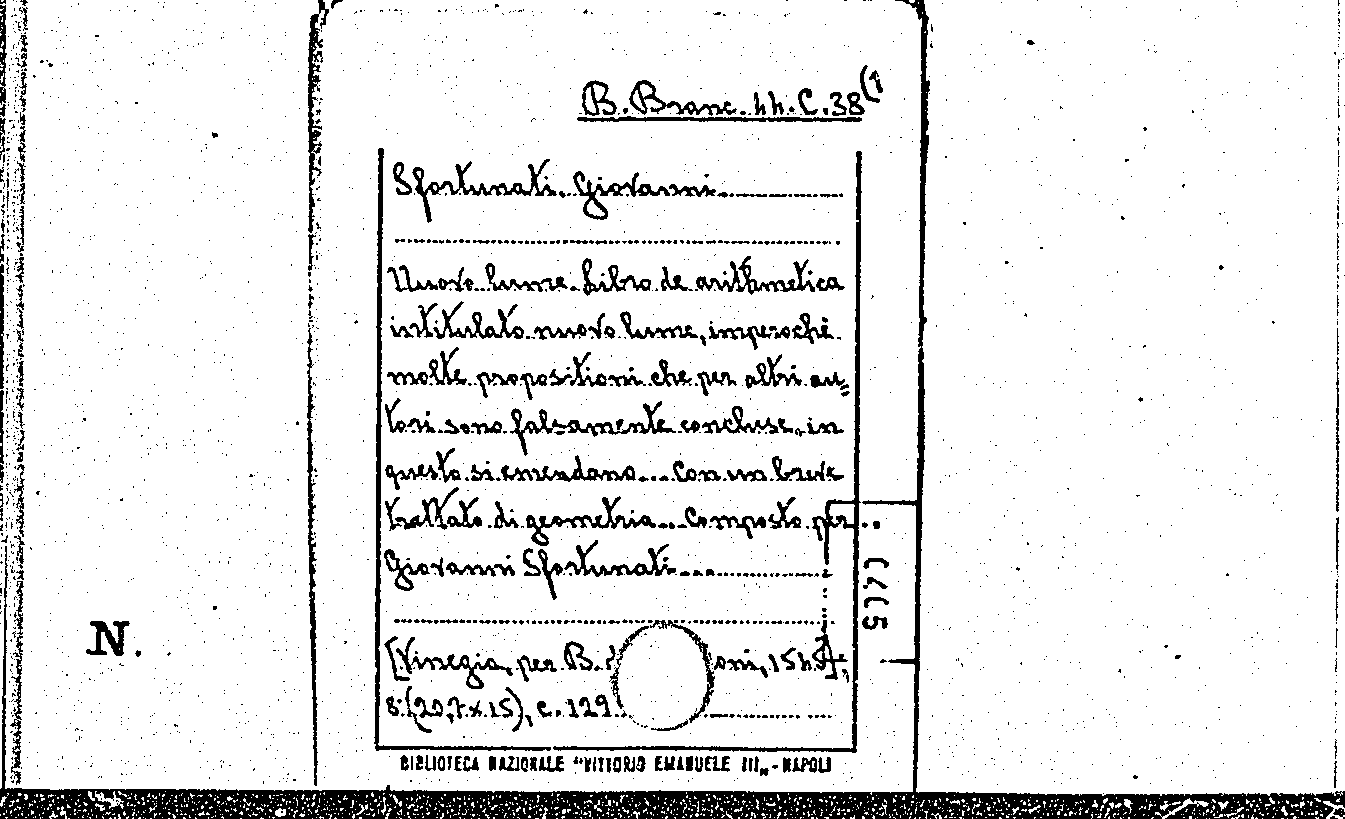 B. Branc. 44. C. 38(1
Sfortunati. Giovanni.
Nuovo lume. Libro de arithmetica
intitulato nuovo lume, imperochè
molte propositioni che per altri au=
tori sono falsamente concluse, in
questo si emendano... Con un breve
trattato di geometria... Composto per..
Giovanni Sfortunati...
[Vinegia, per B. oni, 1545],
8.(20,7 x 15), c. 129
N.
BIBLIOTECA NAZIONALE "VITTORIO EMANUELE III„ - NAPOLI